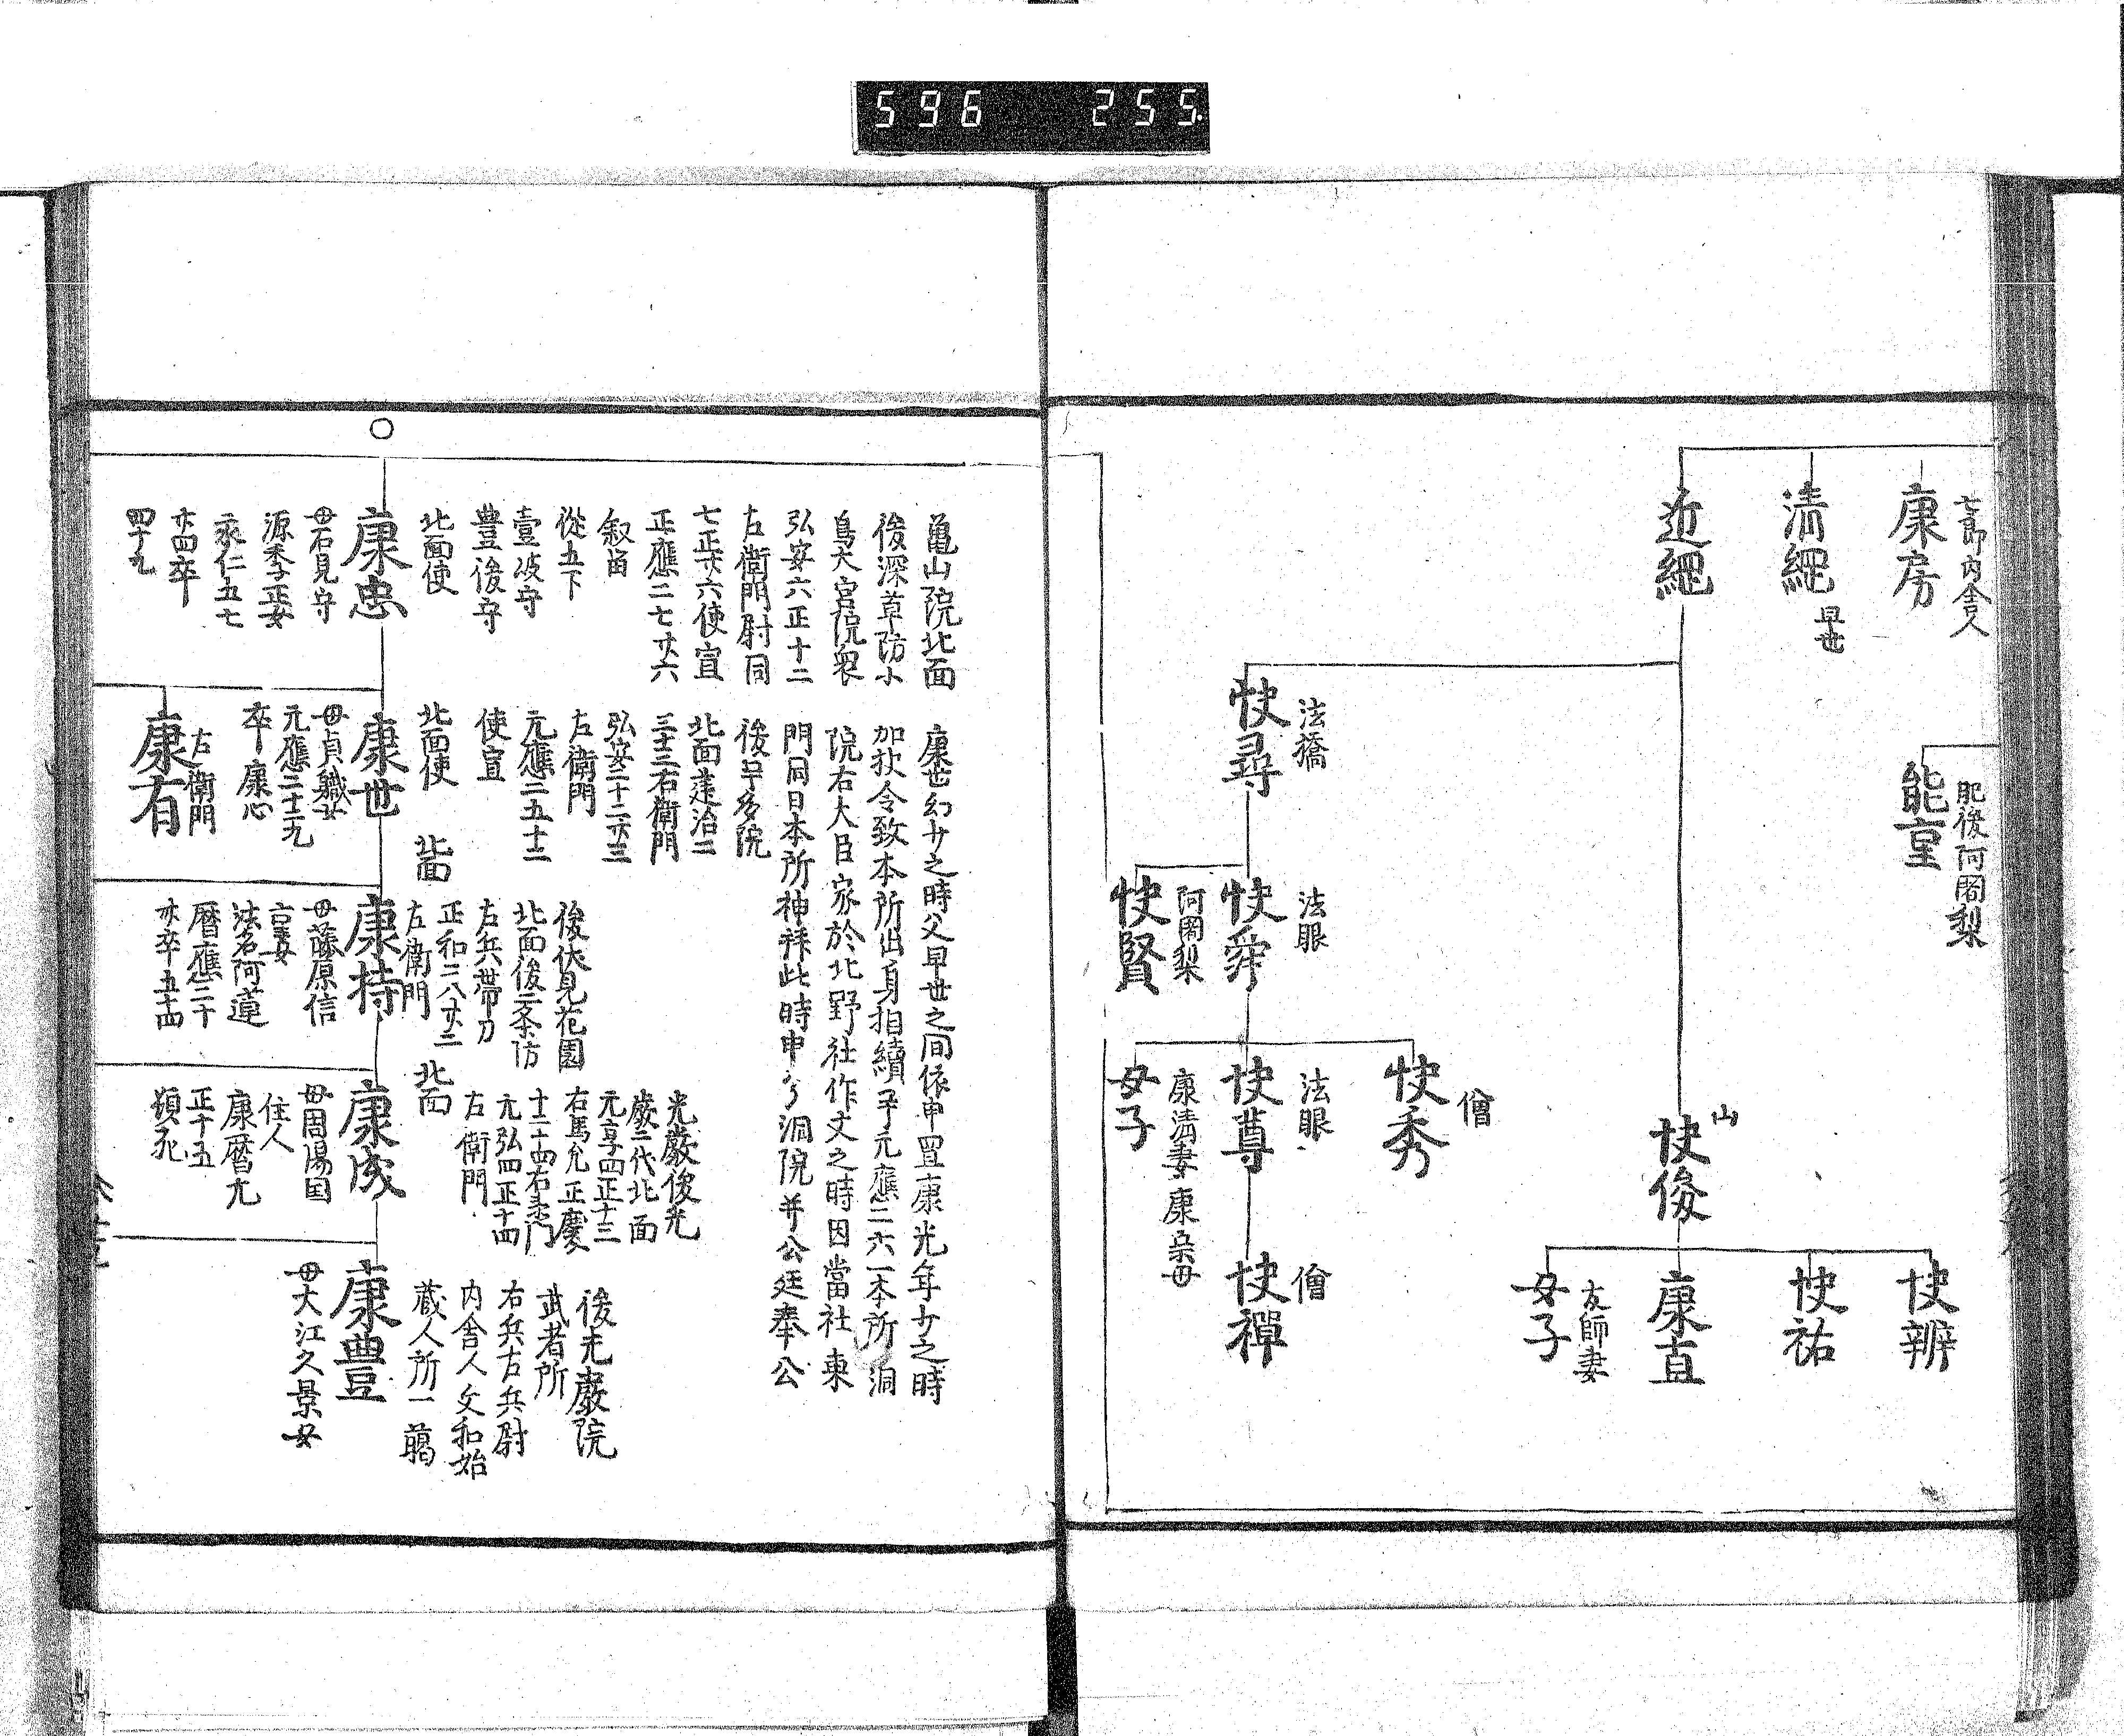 596 255
七郎内舎人
康房
清繩
早世
近繩
肥後阿闍梨
能童
法橋
快尋
法眼
快舜
阿闍梨
快賢
僧
快秀
法眼
快尊
康清妻 康朶母
女子
僧
快禪
山
快俊
快辨
快祐
康直
友師妻
女子
亀山院北面
後深草防小
鳥大宮院衆
弘安六正十二
左衛門尉同
七正廿六使宣
正應二七廿六
叙留
從五下
壹岐守
豊後守
北面使
康忠
母石見守
源季正女
永仁五七
廿四卒
四十九
康世幻少之時父早世之間依申置康光年少之時
加扶令致本所出身相續乎元應二六一本所洞
院右大臣家於北野社作文之時因當社東
門同日本所神拝此時申今洞院并公廷奉公
後宇多院
北面建治二
三十三右衛門
弘安三十二廿三
左衛門
元應二五十二
使宣
北面使
康世
母貞職女
元應二十二九
卒 康心
左衛門
康有
後伏見花園
北面後二条防
右兵帯刀
正和二八廿二
左衛門
北面
康持
母藤原信
言妻
法名阿蓮
暦應二十
廿卒五十四
光嚴後光
嚴二代北面
元亨四正十三
右馬允正慶
十二十四右衛門
元弘四正十四
右衛門
北面
康成
母周陽国
住人
康暦元
正十五
頓死
後光嚴院
武者所
右兵左兵尉
内舎人文和始
蔵人所一﨟
康豊
母大江久景女